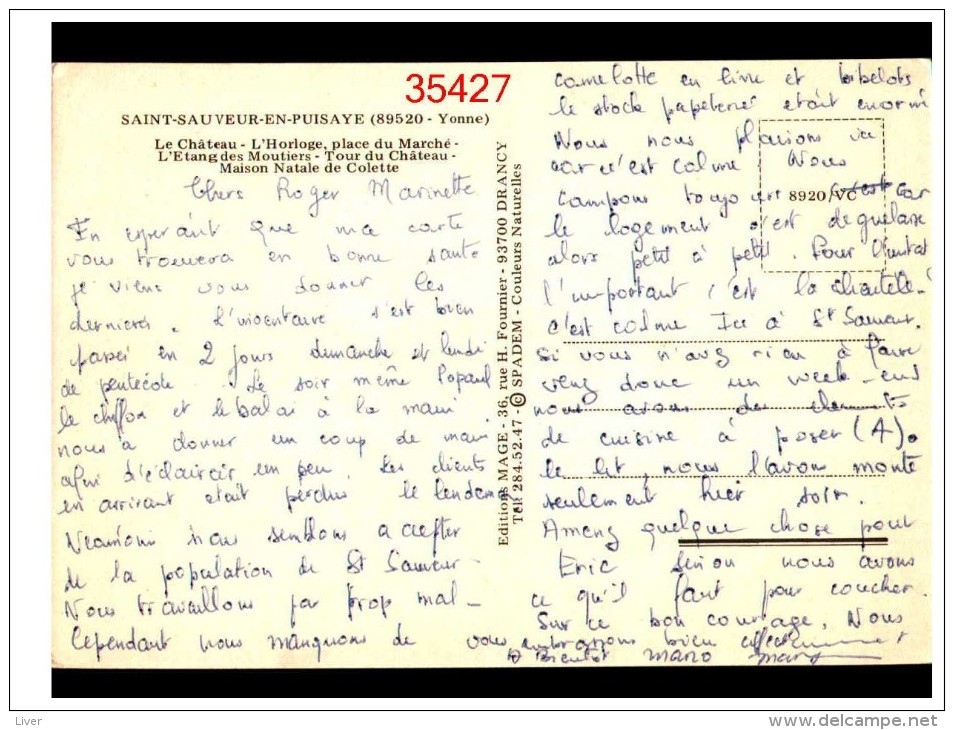 35427
SAINT-SAUVEUR-EN-PUISAYE (89520 - Yonne)
Le Château - L'Horloge, place du Marché -
L'Etang des Moutiers - Tour du Château -
Maison Natale de Colette
Chers Roger Marinette
En esperant que ma carte
vous trouvera en bonne santé
je viens vous donner les
dernieres. L'inventaire s'est bien
passé en 2 jours dimanche et lundi
de pentecôte. Le soir même Popaul
le chiffon et le balai à la main
nous a donner un coup de main
afin d'eclaircir un peu. Les clients
en arrivant etait perdus le lendemain
Neanmoins nous semblons accepter
de la population de St Sauveur.
Nous travaillons pas trop mal.
Cependant nous manquons de
Editions MAGE - 36, rue H. Fournier - 93700 DRANCY
Tél. 284.52.47 - © SPADEM - Couleurs Naturelles
8920/VC
camelotte en livre et bibelots
le stock papeterie etait enorme
Nous nous plaisons ici
car c'est calme Nous
campons toujours c'est car
le logement c'est deguelasse
alors petit à petit. Pour l'instant
l'important c'est la clientèle.
c'est calme Ici à St Sauveur.
Si vous n'avez rien à faire
venez donc un week-end
nous avons des elements
de cuisine à poser (4).
le lit, nous l'avons monté
seulement hier soir.
Amenez quelque chose pour
Eric sinon nous avons
ce qu'il faut pour coucher.
Sur ce bon courage. Nous
vous embrassons bien affectueusement
A Bientôt Mario
Liver
www.delcampe.net